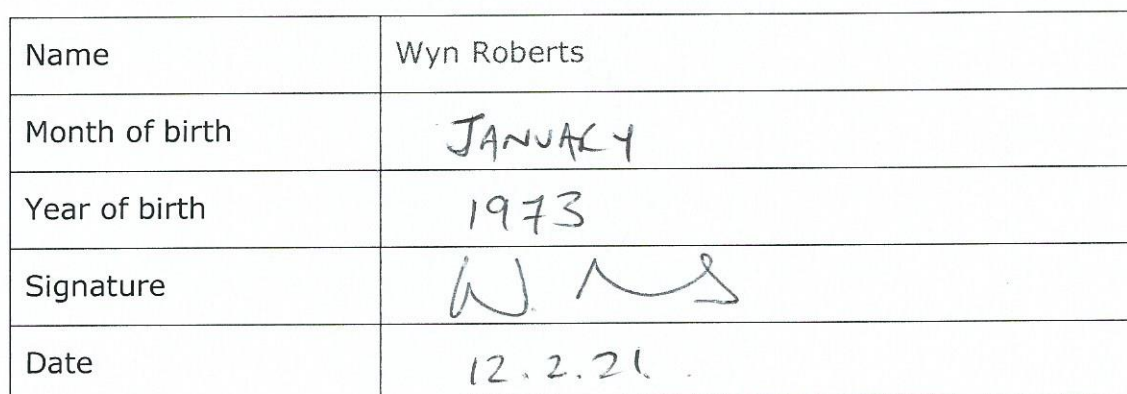 Name Wyn Roberts
Month of birth JANUARY
Year of birth 1973
Signature W.
Date 12.2.21.